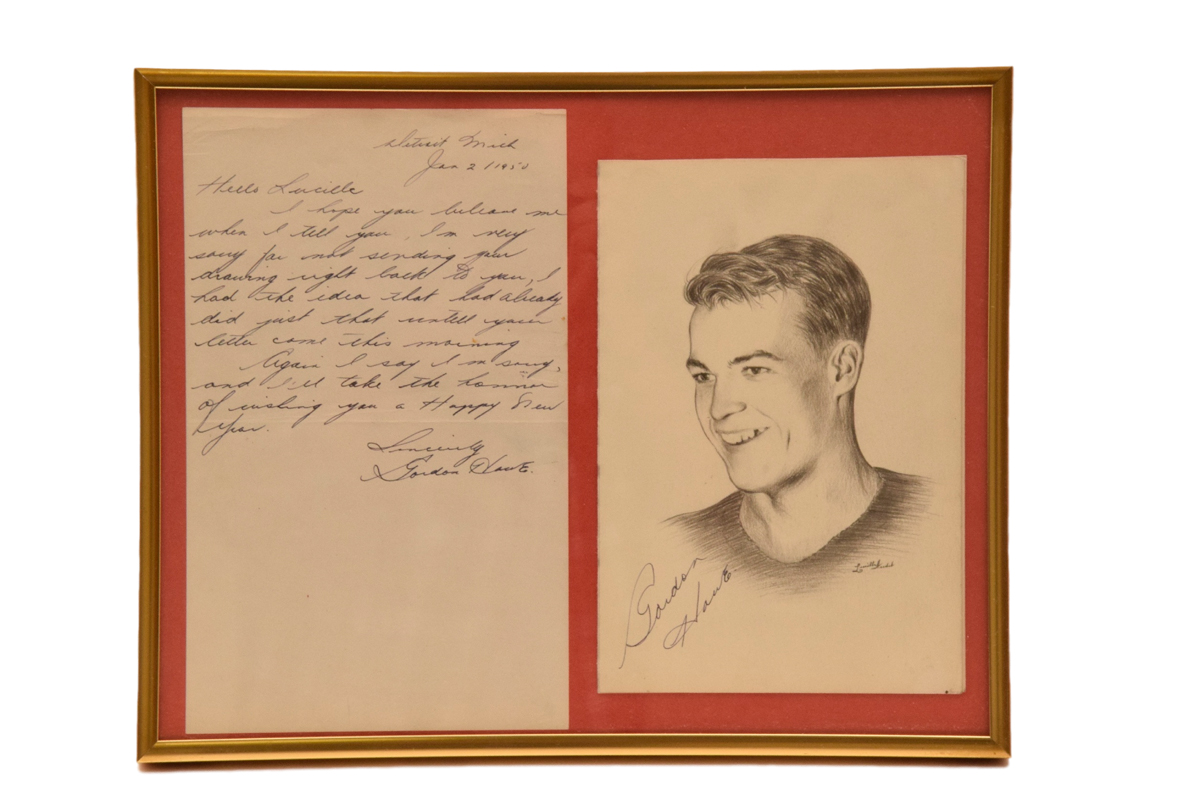 Detroit Mich
Jan 2 / 1950
Hello Lucille
I hope you beleave me
when I tell you, I'm very
sorry for not sending your
drawing right back to you, I
had the idea that had already
did just that untell your
letter came this morning
Again I say I'm sorry,
and I'll take the honnor
of wishing you a Happy New
Year.
Sincerely
Gordon Howe.
Gordon
Howe
Lucille